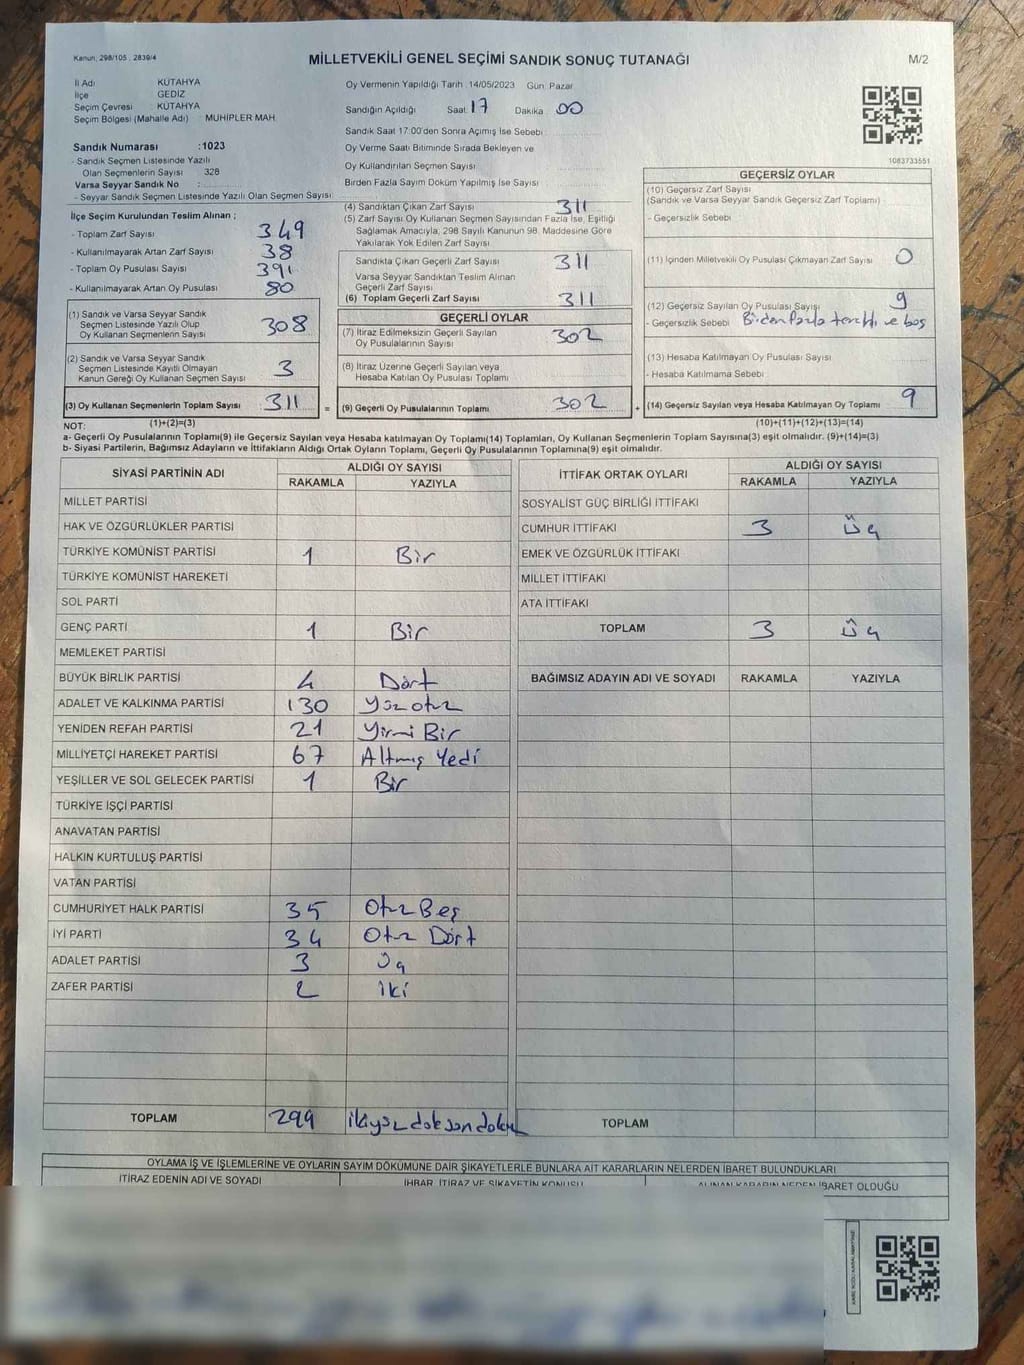 Kanun; 298/105 , 2839/4
MİLLETVEKİLİ GENEL SEÇİMİ SANDIK SONUÇ TUTANAĞI
M/2
İl Adı KÜTAHYA
İlçe GEDİZ
Seçim Çevresi : KÜTAHYA
Seçim Bölgesi (Mahalle Adı) : MUHİPLER MAH.
Oy Vermenin Yapıldığı Tarih :14/05/2023 Gün: Pazar
Sandığın Açıldığı Saat: 17 Dakika : 00
Sandık Saat 17:00'den Sonra Açımış İse Sebebi :
Oy Verme Saati Bitiminde Sırada Bekleyen ve
Oy Kullandırılan Seçmen Sayısı
Birden Fazla Sayım Döküm Yapılmış İse Sayısı :
1083733551
Sandık Numarası :1023
- Sandık Seçmen Listesinde Yazılı
Olan Seçmenlerin Sayısı 328
Varsa Seyyar Sandık No :
- Seyyar Sandık Seçmen Listesinde Yazılı Olan Seçmen Sayısı:
İlçe Seçim Kurulundan Teslim Alınan ;
- Toplam Zarf Sayısı : 349
- Kullanılmayarak Artan Zarf Sayısı : 38
- Toplam Oy Pusulası Sayısı : 391
- Kullanılmayarak Artan Oy Pusulası : 80
(1) Sandık ve Varsa Seyyar Sandık
Seçmen Listesinde Yazılı Olup
Oy Kullanan Seçmenlerin Sayısı 308
(2) Sandık ve Varsa Seyyar Sandık
Seçmen Listesinde Kayıtlı Olmayan
Kanun Gereği Oy Kullanan Seçmen Sayısı 3
(3) Oy Kullanan Seçmenlerin Toplam Sayısı 311 =
(4) Sandıktan Çıkan Zarf Sayısı 311
(5) Zarf Sayısı Oy Kullanan Seçmen Sayısından Fazla İse, Eşitliği
Sağlamak Amacıyla; 298 Sayılı Kanunun 98. Maddesine Göre
Yakılarak Yok Edilen Zarf Sayısı
Sandıkta Çıkan Geçerli Zarf Sayısı 311
Varsa Seyyar Sandıktan Teslim Alınan
Geçerli Zarf Sayısı
(6) Toplam Geçerli Zarf Sayısı 311
GEÇERLİ OYLAR
(7) İtiraz Edilmeksizin Geçerli Sayılan
Oy Pusulalarının Sayısı 302
(8) İtiraz Üzerine Geçerli Sayılan veya
Hesaba Katılan Oy Pusulası Toplamı
(9) Geçerli Oy Pusulalarının Toplamı 302 +
GEÇERSİZ OYLAR
(10) Geçersiz Zarf Sayısı
(Sandık ve Varsa Seyyar Sandık Geçersiz Zarf Toplamı)
- Geçersizlik Sebebi
(11) İçinden Milletvekili Oy Pusulası Çıkmayan Zarf Sayısı 0
(12) Geçersiz Sayılan Oy Pusulası Sayısı 9
- Geçersizlik Sebebi Birden fazla tercihli ve boş
(13) Hesaba Katılmayan Oy Pusulası Sayısı
- Hesaba Katılmama Sebebi
(14) Geçersiz Sayılan veya Hesaba Katılmayan Oy Toplamı 9
NOT: (1)+(2)=(3) (10)+(11)+(12)+(13)=(14)
a- Geçerli Oy Pusulalarının Toplamı(9) ile Geçersiz Sayılan veya Hesaba katılmayan Oy Toplamı(14) Toplamları, Oy Kullanan Seçmenlerin Toplam Sayısına(3) eşit olmalıdır. (9)+(14)=(3)
b- Siyasi Partilerin, Bağımsız Adayların ve İttifakların Aldığı Ortak Oyların Toplamı, Geçerli Oy Pusulalarının Toplamına(9) eşit olmalıdır.
SİYASİ PARTİNİN ADI ALDIĞI OY SAYISI
RAKAMLA YAZIYLA
MİLLET PARTİSİ
HAK VE ÖZGÜRLÜKLER PARTİSİ
TÜRKİYE KOMÜNİST PARTİSİ 1 Bir
TÜRKİYE KOMÜNİST HAREKETİ
SOL PARTİ
GENÇ PARTİ 1 Bir
MEMLEKET PARTİSİ
BÜYÜK BİRLİK PARTİSİ 4 Dört
ADALET VE KALKINMA PARTİSİ 130 Yüz otuz
YENİDEN REFAH PARTİSİ 21 Yirmi Bir
MİLLİYETÇİ HAREKET PARTİSİ 67 Altmış Yedi
YEŞİLLER VE SOL GELECEK PARTİSİ 1 Bir
TÜRKİYE İŞÇİ PARTİSİ
ANAVATAN PARTİSİ
HALKIN KURTULUŞ PARTİSİ
VATAN PARTİSİ
CUMHURİYET HALK PARTİSİ 35 Otuz Beş
İYİ PARTİ 34 Otuz Dört
ADALET PARTİSİ 3 Üç
ZAFER PARTİSİ 2 İki
TOPLAM 299 ikiyüz doksan dokuz
İTTİFAK ORTAK OYLARI ALDIĞI OY SAYISI
RAKAMLA YAZIYLA
SOSYALİST GÜÇ BİRLİĞİ İTTİFAKI
CUMHUR İTTİFAKI 3 Üç
EMEK VE ÖZGÜRLÜK İTTİFAKI
MİLLET İTTİFAKI
ATA İTTİFAKI
TOPLAM 3 Üç
BAĞIMSIZ ADAYIN ADI VE SOYADI RAKAMLA YAZIYLA
TOPLAM
OYLAMA İŞ VE İŞLEMLERİNE VE OYLARIN SAYIM DÖKÜMÜNE DAİR ŞİKAYETLERLE BUNLARA AİT KARARLARIN NELERDEN İBARET BULUNDUKLARI
İTİRAZ EDENİN ADI VE SOYADI İHBAR, İTİRAZ VE ŞİKAYETİN KONUSU ALINAN KARARIN NEDEN İBARET OLDUĞU